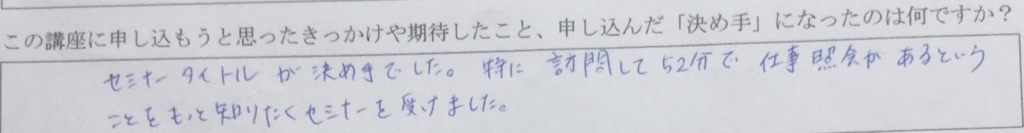 この講座に申し込もうと思ったきっかけや期待したこと、申し込んだ「決め手」になったのは何ですか？
セミナータイトルが決め手でした。特に訪問して52分で仕事照会があるという
ことをもっと知りたくセミナーを受けました。